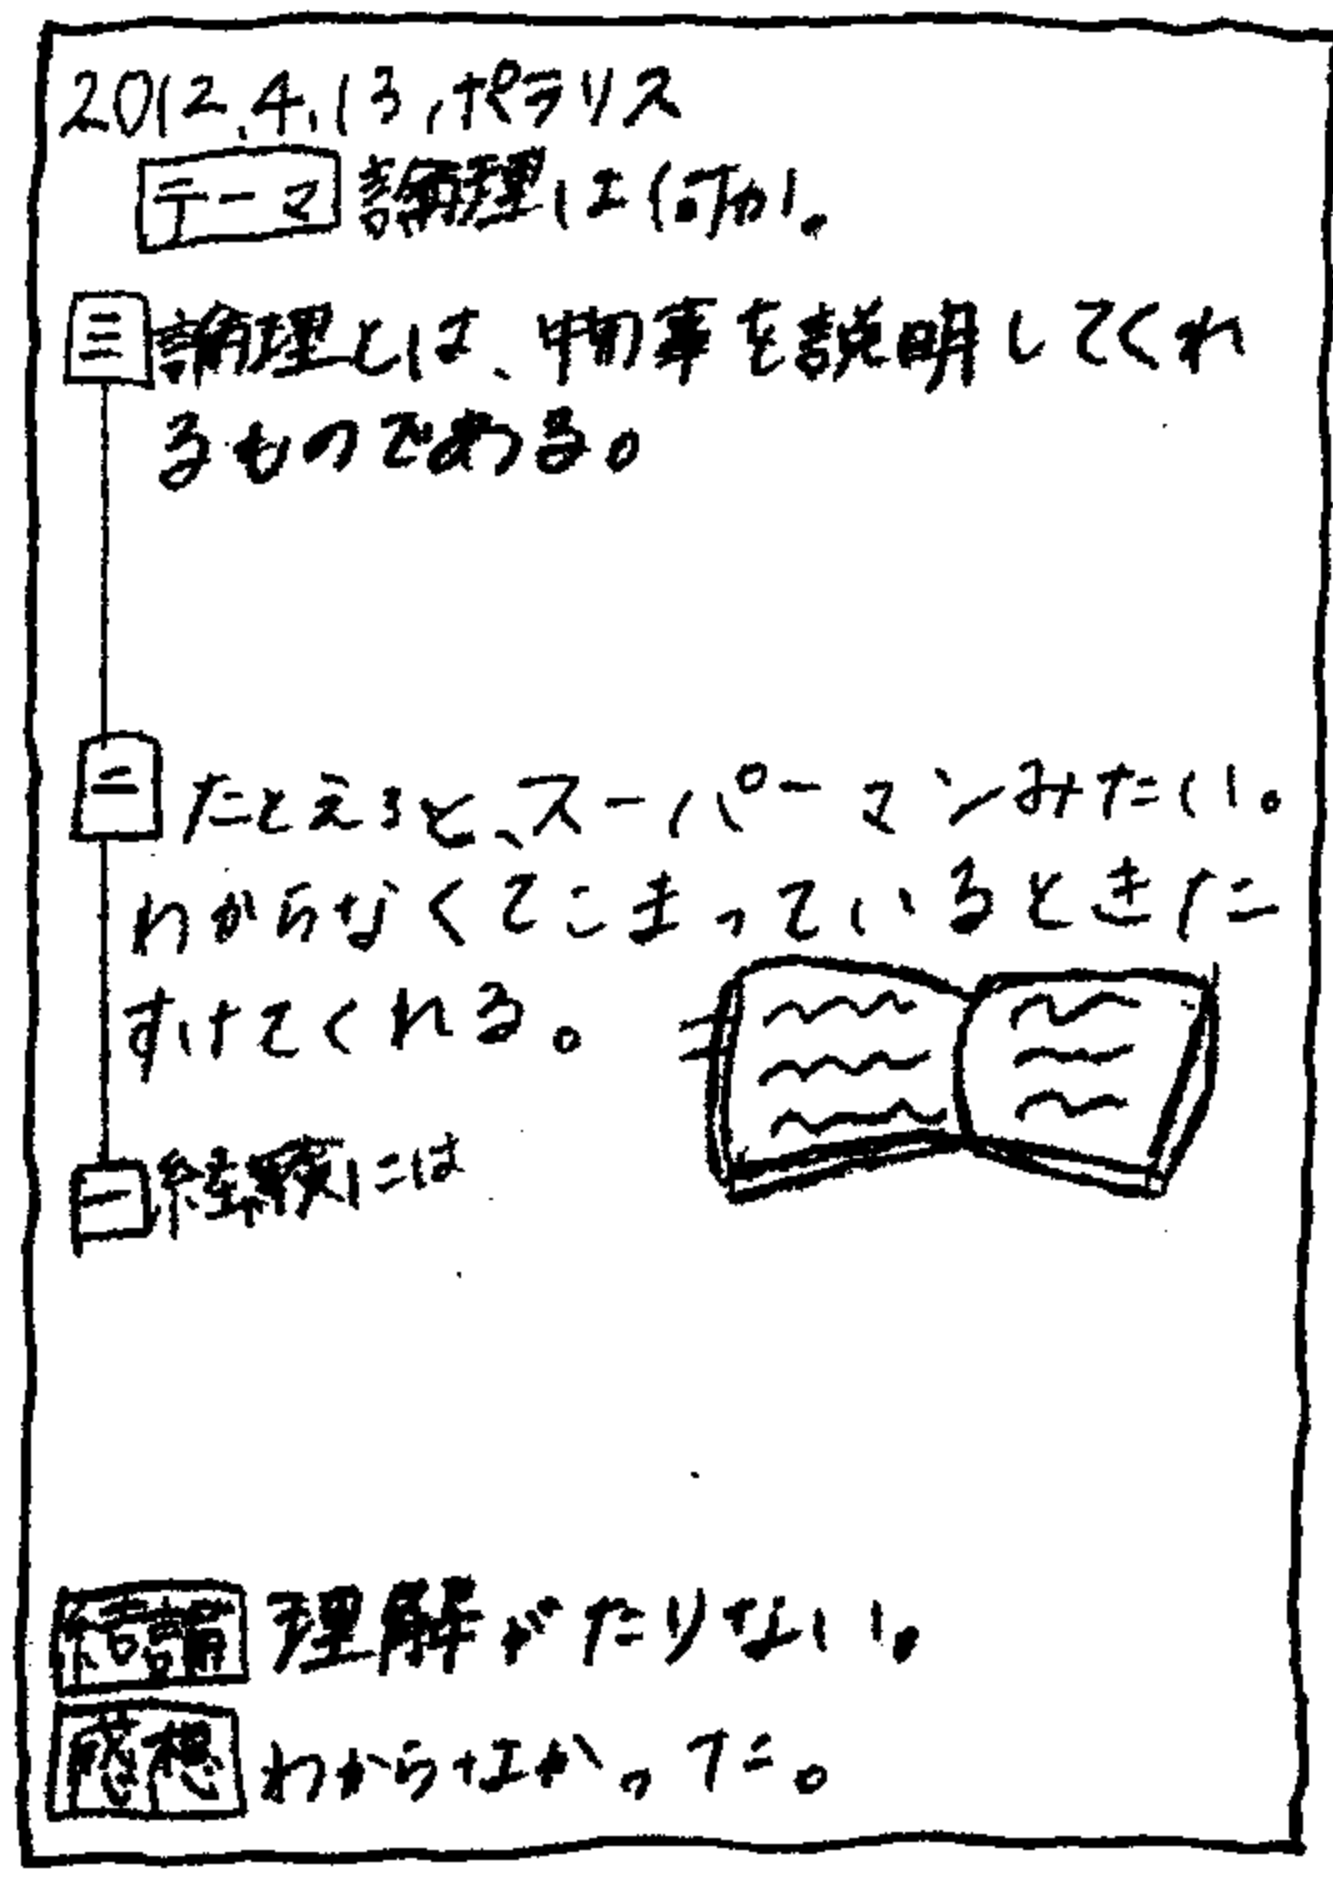 2012.4.13,ポラリス
テーマ 論理は何か。
三 論理とは、物事を説明してくれ
るものである。
二 たとえると、スーパーマンみたい。
わからなくてこまっているときた
すけてくれる。
一 経験には
結論 理解がたりない。
感想 わからなかった。